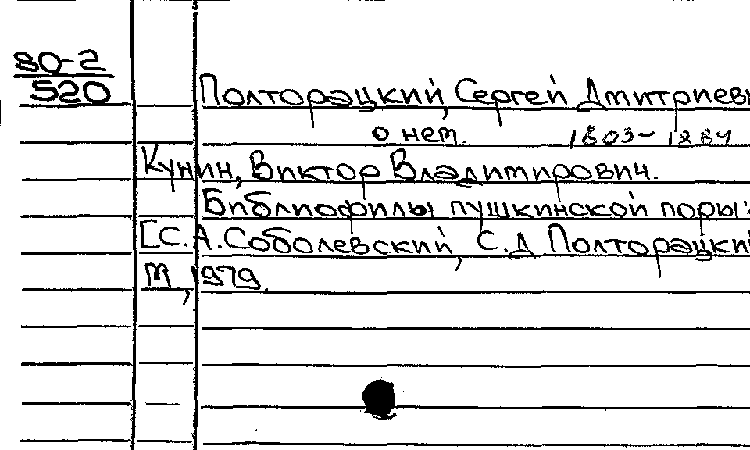 80-2
520
Полторацкий, Сергей Дмитриев
о нем. 1803-1884
Кунин, Виктор Владимирович.
Библиофилы пушкинской поры:
[С.А.Соболевский, С.Д Полторацки
М, 1979.